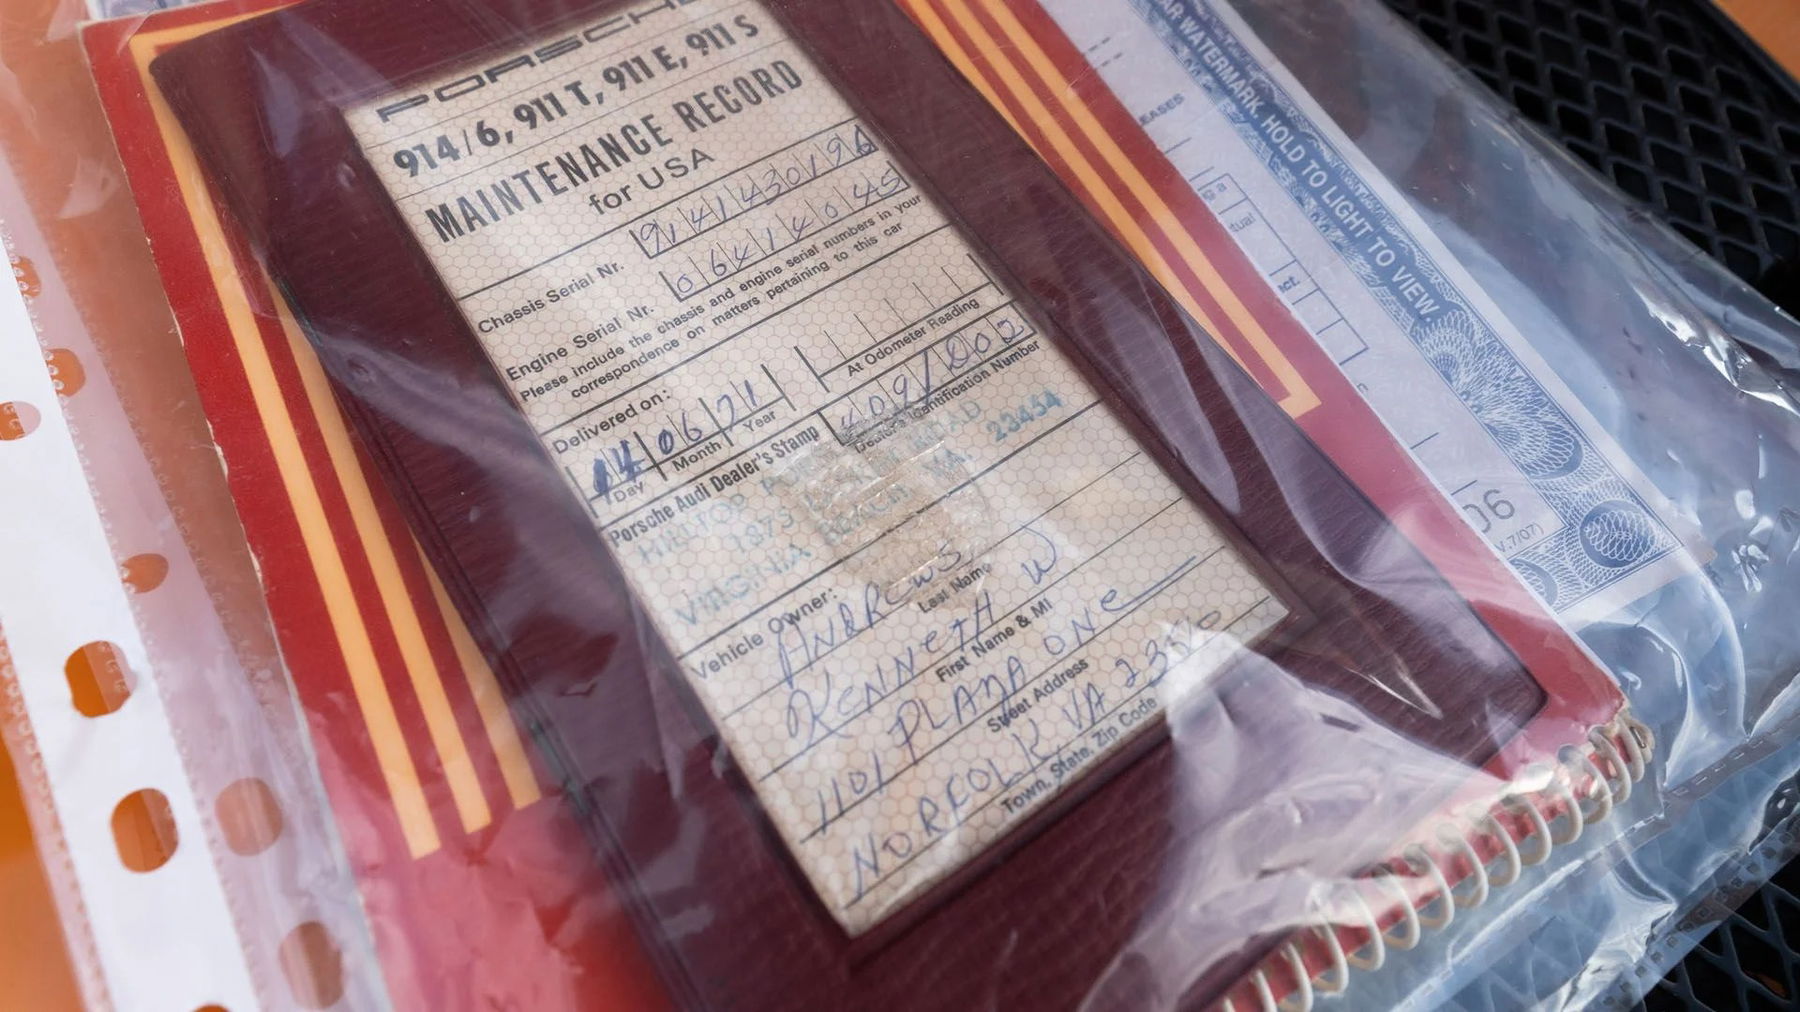 PORSCHE
914/6, 911 T, 911 E, 911 S
MAINTENANCE RECORD
for USA
Chassis Serial Nr. 9141430196
Engine Serial Nr. 06414045
Please include the chassis and engine serial numbers in your
correspondence on matters pertaining to this car
Delivered on:
14 06 71
Day Month Year
At Odometer Reading
409/202
Dealer's Identification Number
Porsche Audi Dealer's Stamp
HILLTOP ROAD
1875
VIRGINIA BEACH, VA. 23454
Vehicle Owner:
ANDREWS
Last Name
KENNETH W
First Name & MI
1101 PLAZA ONE
Street Address
NORFOLK VA
Town, State, Zip Code
WATERMARK. HOLD TO LIGHT TO VIEW
EASES
tual
act.
06
V.7/07)